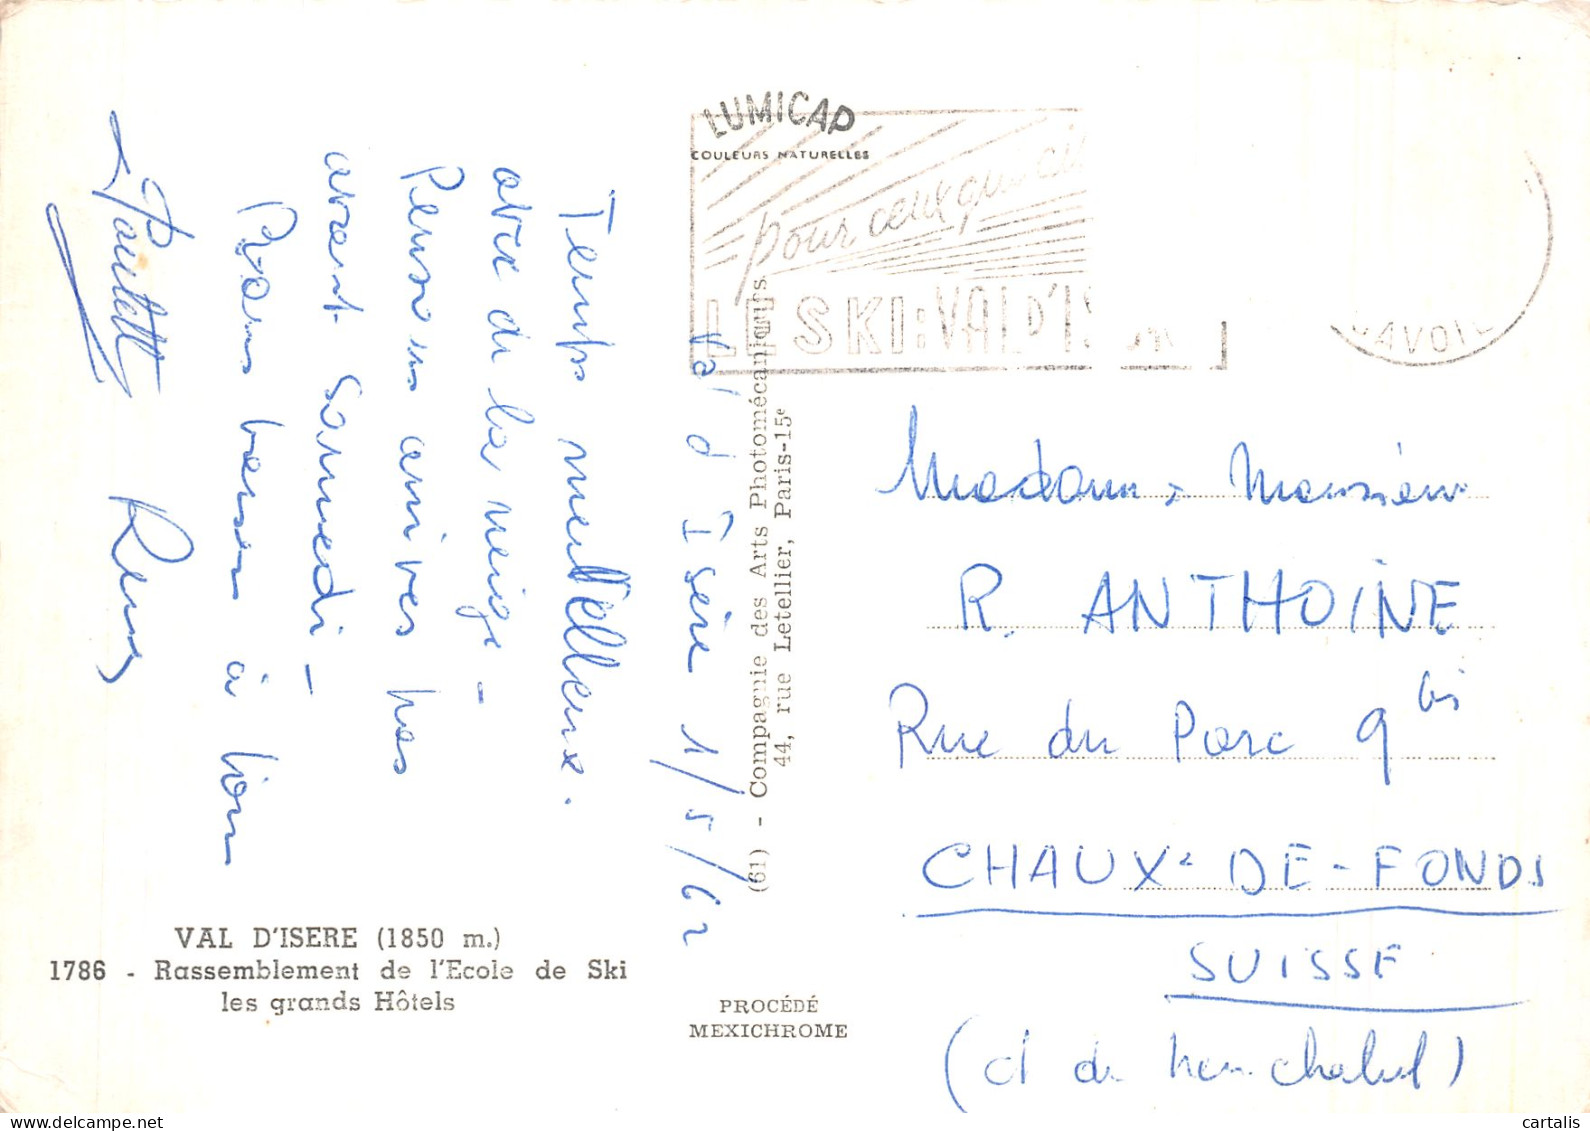 LUMICAP
COULEURS NATURELLES
pour ceux qui
LE SKI: VAL D'IS
SAVOIE
Val d'Isère 1/5/62
Temps merveilleux.
avec de la neige -
Pensons arriver pas
avant Samedi -
Bons baisers à tous
Paulette Rémy
Madame, Monsieur
R. ANTHOINE
Rue du Parc 9 bis
CHAUX-DE-FONDS
SUISSE
(ct de Neuchatel)
(61) - Compagnie des Arts Photomécaniques
44, rue Letellier, Paris-15e
VAL D'ISERE (1850 m.)
1786 - Rassemblement de l'Ecole de Ski
les grands Hôtels
PROCÉDÉ
MEXICHROME
cartalis